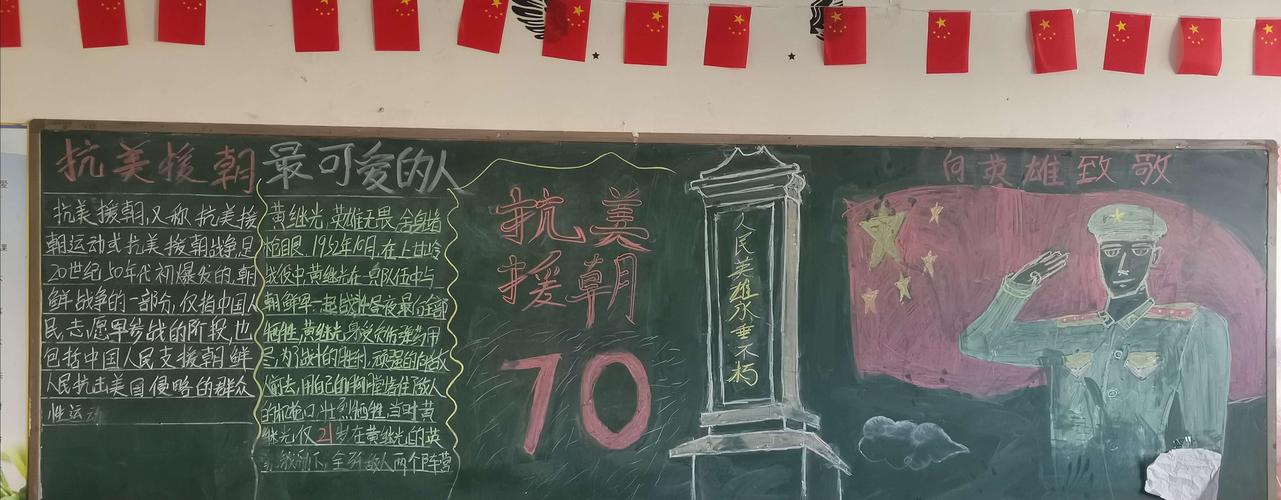 抗美援朝
抗美援朝,又称抗美援
朝运动或抗美援朝战争,是
20世纪50年代初爆发的朝
鲜战争的一部分,仅指中国人
民志愿军参战的阶段,也
包括中国人民支援朝鲜
人民抗击美国侵略的群众
性运动
最可爱的人
黄继光 英雄无畏 舍身堵
枪眼 1952年10月,在上甘岭
战役中,黄继光在 队伍中与
朝鲜军一起战 最后全部
牺牲,黄继光身受 弹药用
尽,为了战 的胜利,顽强的向敌人
去,用自己的胸膛堵住敌人
的 口 壮烈牺牲,当时黄
继光仅21岁在黄继光的英
下,全 敌人两个阵营
抗美
援朝
70
人民英雄永垂不朽
向英雄致敬